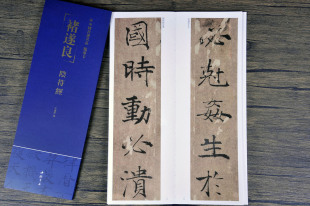 「褚遂良」
陰符經
必剋姦生於
國時動必潰